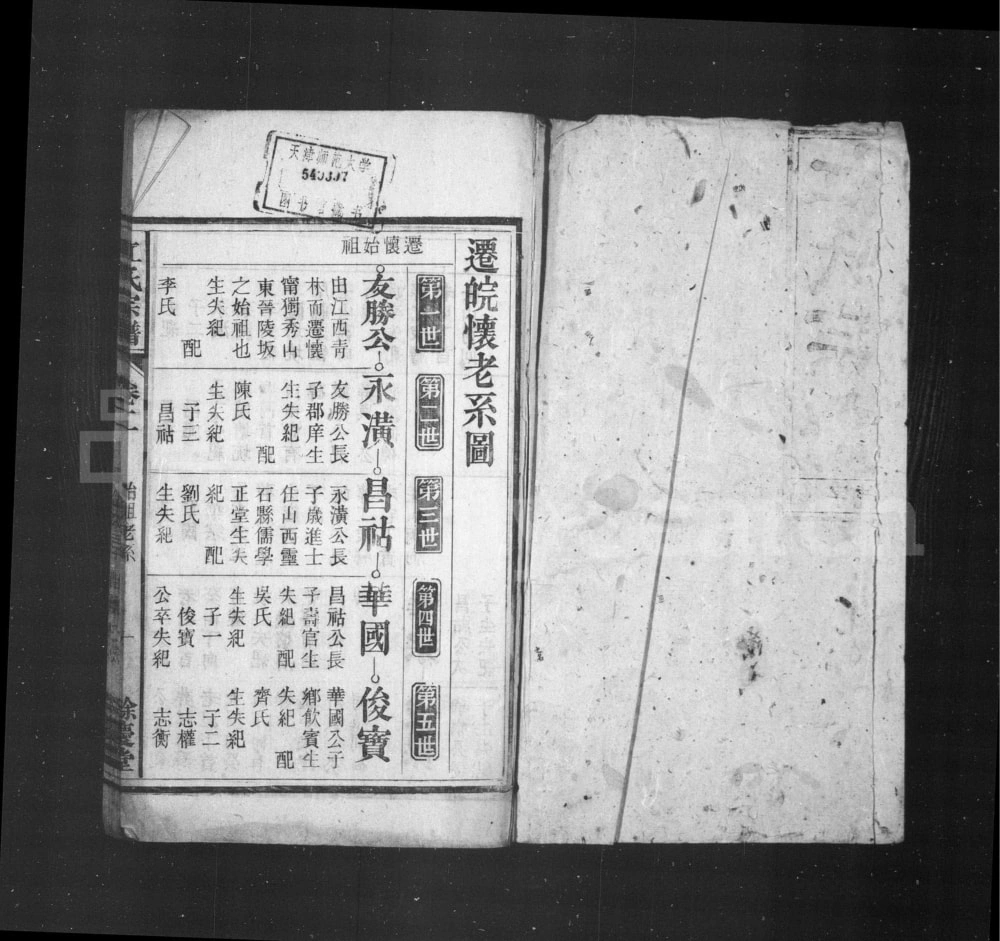 天津师范大学
遷皖懷老系圖
第一世
第二世
第三世
第四世
第五世
遷懷始祖
友勝公
永潢
昌祜
華國
俊寶
由江西青
林而遷懷
甯獨秀山
東晉陵坂
之始祖也
生失紀
配
李氏
友勝公長
子郡庠生
生失紀
配
陳氏
生失紀
子三
昌祜
永潢公長
子歲進士
任山西靈
石縣儒學
正堂生失
紀 配
劉氏
生失紀
昌祜公長
子壽官生
失紀 配
吳氏
生失紀
子一
俊寶
公卒失紀
華國公子
鄉飲賓生
失紀 配
齊氏
生失紀
子二
志權
志衡
江氏宗譜
卷二
始祖老系
一
餘慶堂